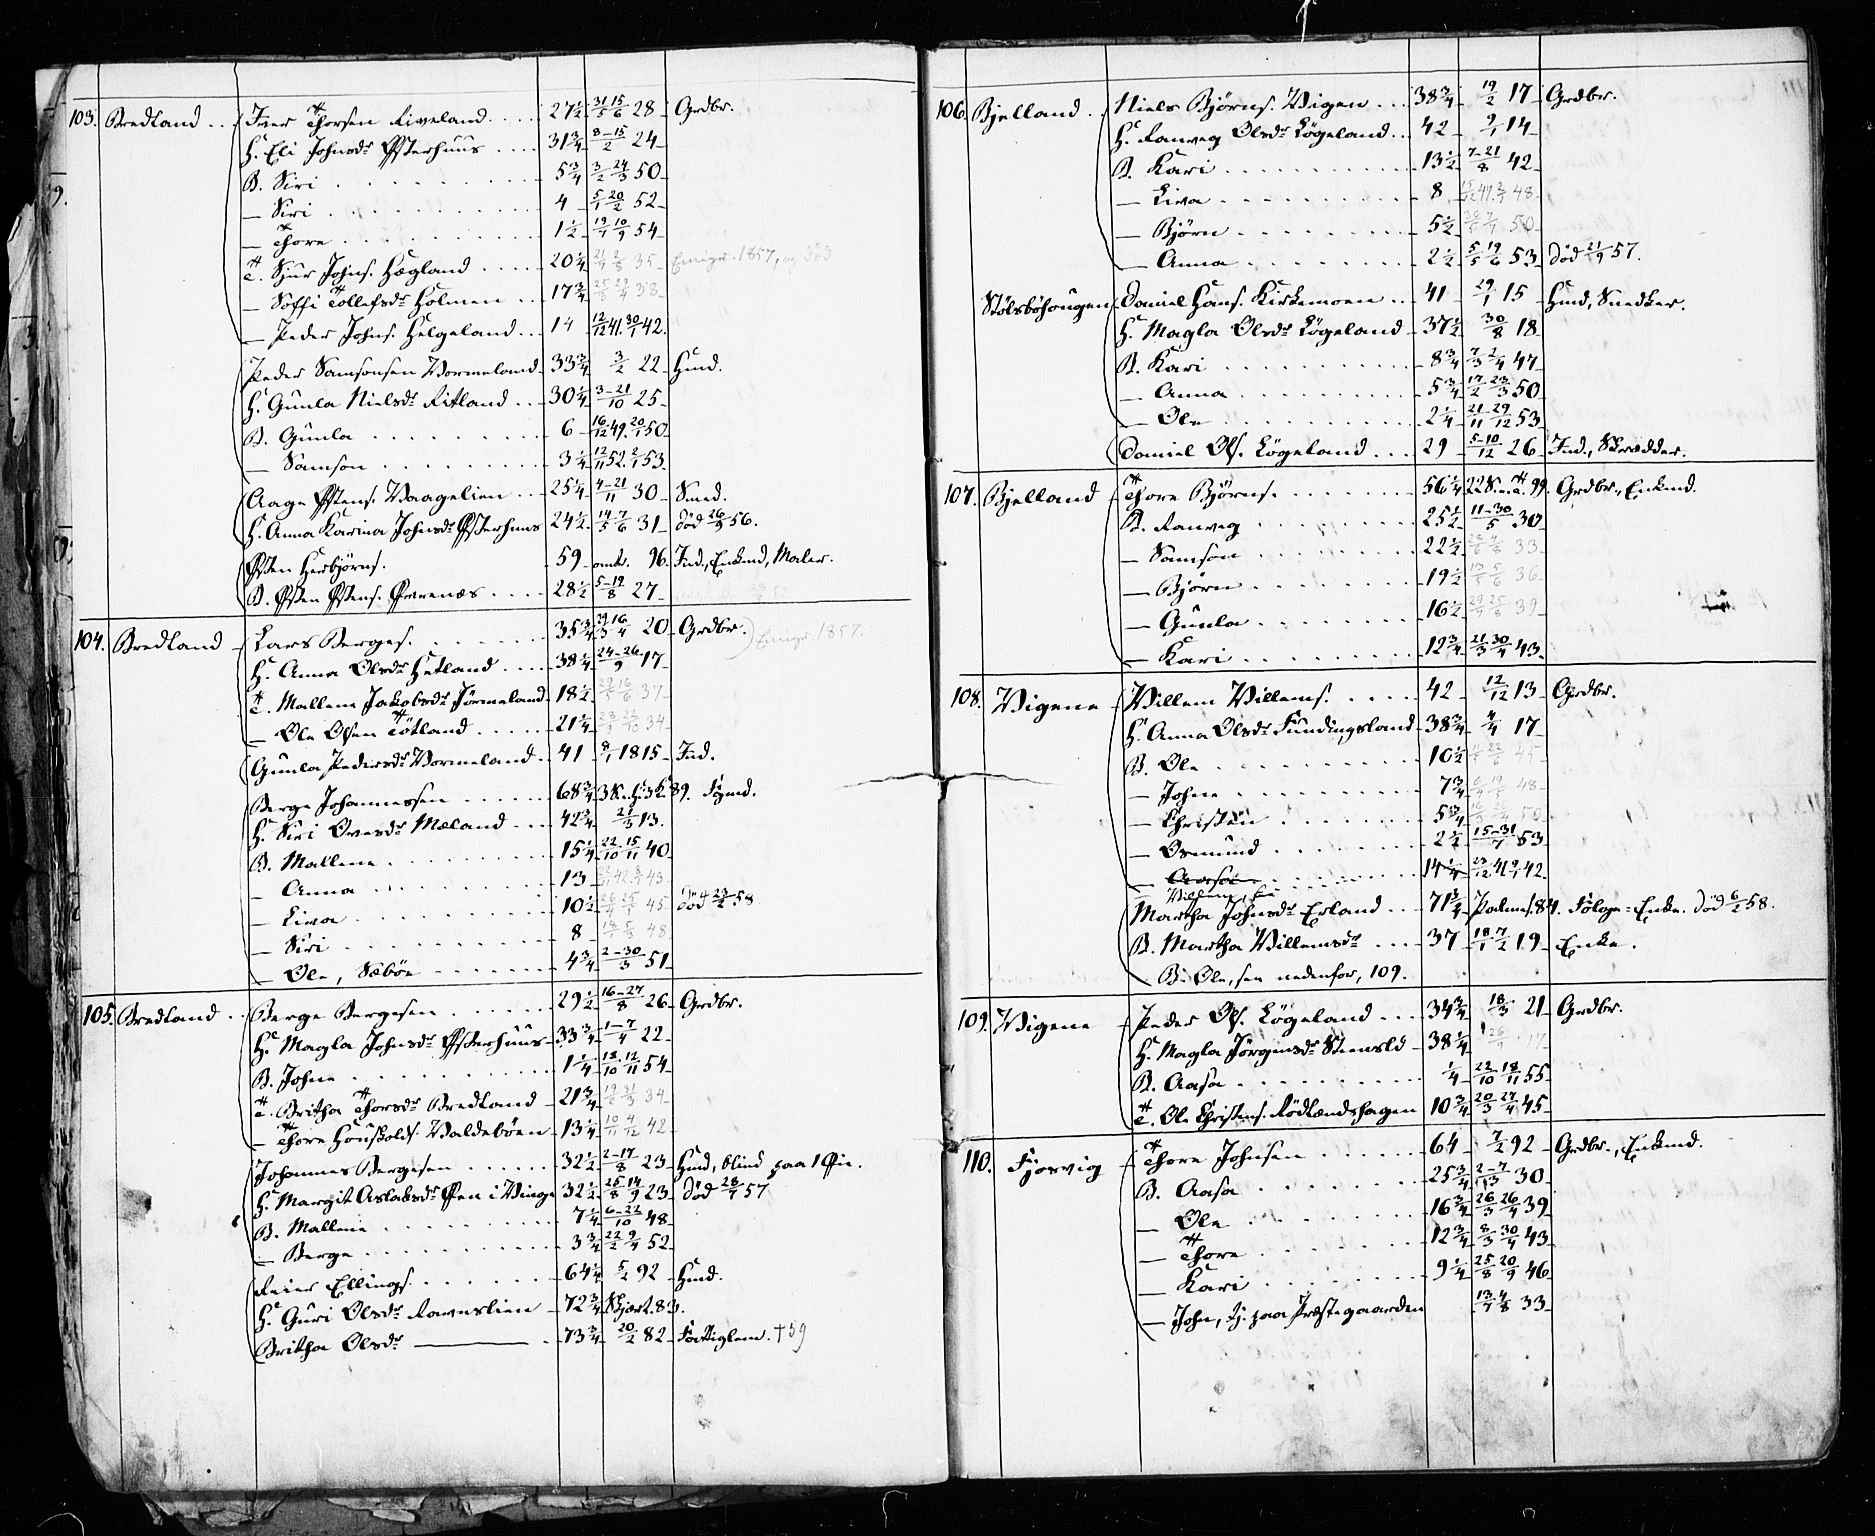 103. Bredland .. Iver Thorsen Liveland .... 27½ 31/5 15/6 28 Grdbr.
H. Eli Johnsdr Østerhuus .... 31¾ 8-15/2 24
B. Siri .... 5¾ 3/2 24/3 50
— Siri .... 4 5/1 20/2 52
— Thore .... 1½ 19/7 10/9 54
T. Sjur Johns. Hægland .... 20¼ 35 Emigr. 1857, og död
— Soffi Tollefsdr Holmen .. 17¾ 38
— Peder Johns. Helgeland .. 14 12/12 41. 30/1 42.
Peder Samsonsen Vormeland 33¾ 3/2 22 Huusmd.
H. Gunla Nielsdr Ritland ... 30¼ 3-21/10 25
B. Gunla .... 6 16/12 49. 20/1 50
— Samson .... 3¼ 12/11 52. 2/1 53
Aage Østens. Vaagelien .. 25¼ 4-21/11 30 Smed.
H. Anna Karina Johnsdr Østerhuus 24½ 14/5 7/6 31 död 26/3 56.
Østen Herbjørns. 59 omtr. 96 Ind., Enkmd, Maler.
B. Østen Østens. .... 28½ 5-19/8 27
104. Bredland Lars Berges. .... 35¾ 29/3 16/4 20 Grdbr. Emigr. 1857.
H. Anna Olsdr Hetland .... 38¼ 24-26/9 17
T. Mallene Jakobsdr Jørmeland 18½ 37
— Ole Olsen Tøtland .... 21¼ 34
Gunla Pedersdr Vormeland . 41 8/1 1815 Ind.
Berge Johannessen .... 68¾ 89. Fgmd.
H. Siri Ormsdr Mæland ... 42¾ 21/3 13.
B. Mallene .... 15¼ 22/10 15/11 40
— Anna .... 13 42. 43
— Liva .... 10½ 45 död 23/2 58
— Siri .... 8 48
— Ole, Sæbøe .... 4¾ 2-30/3 51
105. Bredland .. Berge Bergesen .... 29½ 16-27/8 26 Grdbr.
H. Magla Johnsdr Østerhuus 33¾ 1-7/4 22
B. Johne .... 1¼ 18/10 12/11 54
T. Britha Thorsdr Bredland 21¾ 34
— Thore Housholds. Valdebøen 13¼ 10/11 4/12 42
Johannes Bergesen .... 32½ 2-17/8 23 Hmd, blind paa 1 Øie.
H. Margit Aslaksdr Øen i Vinge 32½ 25/8 14/9 23 död 28/7 57
B. Mallene .... 7¼ 6-22/10 48
— Berge .... 3¾ 22/2 9/4 52
Reier Ellings. .... 64¼ 5/2 92 Hmd.
H. Guri Olsdr Ravnslien 72¾ 83.
Britha Olsdr — . 73¾ 20/2 82 Fattiglem. † 59
106. Bjelland . Niels Bjørns. Vigen ... 38¾ 19/2 17 Grdbr.
H. Ranveg Olsdr Løgeland .. 42 9/1 14
B. Kari .... 13½ 7-21/8 42
— Liva .... 8 47. 48
— Bjørn .... 5½ 50
— Anna .... 2½ 5/5 19/6 53 död 21/9 57.
Stølsbøhougen Daniel Hans. Kirkemoen .. 41 29/1 15 Hmd, Snedker.
H. Magla Olsdr Løgeland 37½ 30/8 18
B. Kari .... 8¾ 7/3 2/4 47
— Anna .... 5¾ 17/2 23/3 50
— Ole .... 2¼ 21/11 29/12 53
Daniel Ols. Løgeland ... 29 5-10/12 26 Ind., Skrædder.
107. Bjelland Thore Bjørns. .... 56¼ 22 S. e. T. 99. Grdbr., Enkmd.
B. Ranveg .... 25½ 11-30/5 30
— Samson .... 22½ 33
— Bjørn .... 19½ 36
— Gunla .... 16½ 39
— Kari .... 12¾ 21/3 30/4 43
108. Vigene Villem Villems. .... 42 12/12 13 Grdbr.
H. Anna Olsdr Fundingsland 38¾ 4/4 17
B. Ole .... 10½ 45
— Johne .... 7¾ 48
— Christen .... 5¾ 50
— Osmund .... 2½ 15-31/7 53
— Aasa .... 14¼ 23/12 41 9/1 42
Martha Johnsdr Erland ... 71¾ Palmes. 84. Föloge-Enke. död 6/2 58.
B. Martha Villemsdr ... 37 18/1 7/2 19 Enke.
— B. Ole, sen nedenfor, 109.
109. Vigene Peder Ols. Løgeland ... 34¾ 18/3 21 Grdbr.
H. Magla Jørgensdr Stensld 38¼ 17
B. Aasa .... ¼ 22/10 18/11 55
T. Ole Christens. Rødlandshagen 10¾ 20/3 27/4 45
110. Fjosvig Thore Johnsen .... 64 7/2 92 Grdbr., Enkmd.
B. Aasa .... 25¾ 2-7/3 30
— Ole .... 16¾ 26/3 26/4 39
— Thore .... 12¾ 8/3 30/4 43
— Kari .... 9¼ 25/8 20/9 46
— John, tj. paa Præstegaarden 13/7 4/8 33